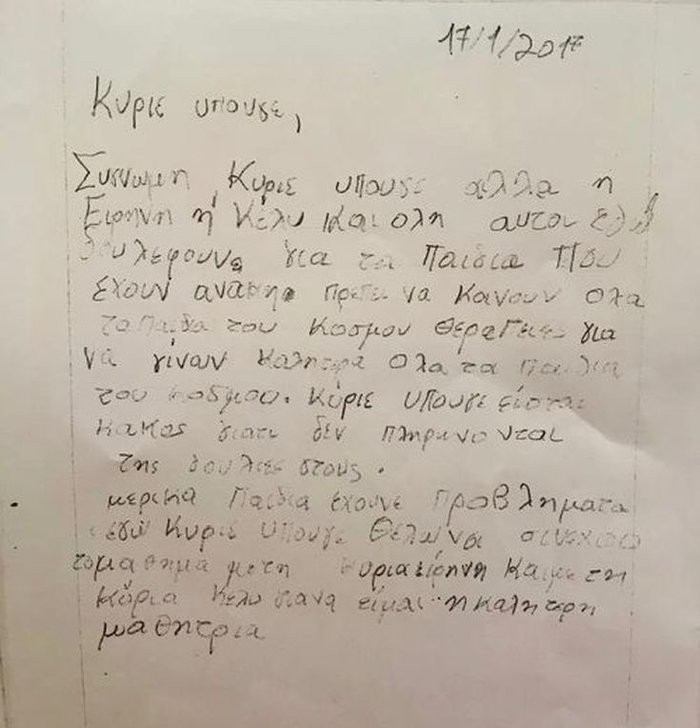 17/1/2017
Κυριε υπουγε,
Συγνωμη Κυριε υπουγε αλλα η
Ειρηνη η Κέλυ και ολη αυτοι εδω
δουλεφουνε για τα παιδια που
εχουν αναγκη πρεπει να κανουν ολα
τα παιδα του κοσμου θεραπειες για
να γίνουν καλητερα ολα τα παιδια
του κοσμου. Κύριε υπουγε είσται
κακος γιατι δεν πληρωνονται
της δουλιες στους.
μερικα παιδια έχουνε προβληματα
εγω Κυριε υπουγε θελω να συνεχισω
το μαθημα με τη κυρια ειρηνη και με τη
κύρια κελυ για να είμαι η καλητερη
μαθητρια